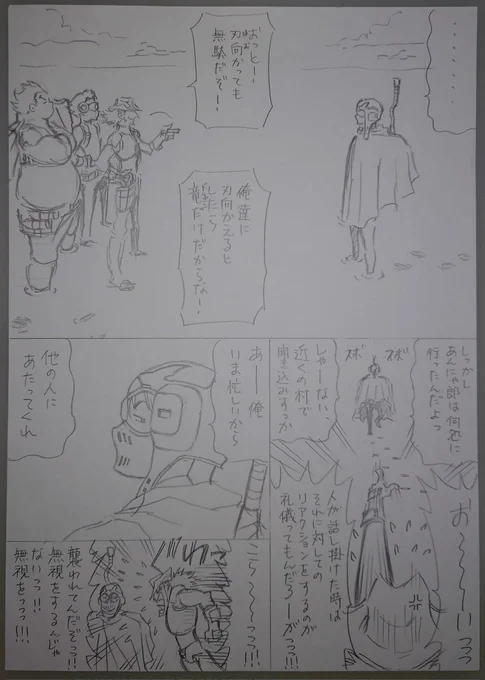 ・・・・・・・・
おっとー、
刃向かっても
無駄だぞー！
俺達に
刃向かえると
したら
竜だけだからなー！
しっかし
あんにゃ郎は何処に
行ったんだよっ
ズボ
ズボ
しゃーない、
近くの村で
聞き込みすっか
あー俺
いま忙しいから
他の人に
あたってくれ
お〜〜〜いっっっ
人が話し掛けた時は
それに対しての
リアクションをするのが
礼儀ってもんだろーがっっ!!!
こら〜〜〜っっっ!!
襲われてんだぞっっ!!
無視をするんじゃ
ないっっ!!
無視をっっっ!!!